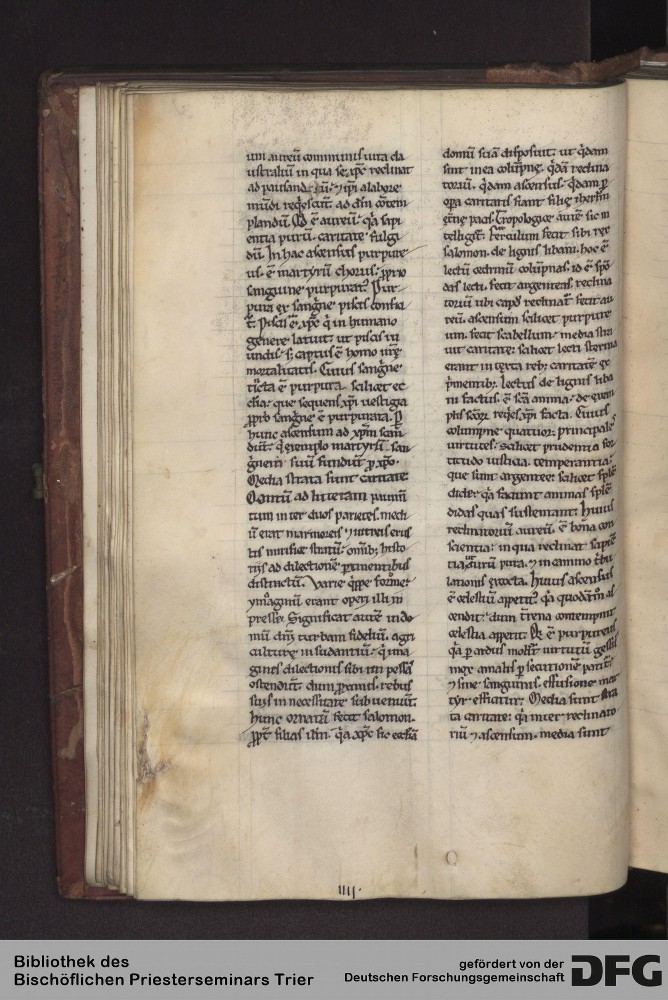 um aureũ communis uita cla
ustraliũ in qua se xp̃c reclinat
ad pausand
mũdi reqͥescũt ad dm̃
plandũ. Id ẽ aureũ. qͥa sapi
entia purũ. caritate fulgi
dũ. In hac ascensus purpure
us. ẽ martyrũ chorus. ꝓprio
sanguine purpurat᷒. Pur
pura ex sangͥne piscis confici
t᷒. Piscis ẽ xp̃c qͥ in humano
genere latuit. ut piscis in
undis. s; captus ẽ homo
mortalitatis. Cuius sangͥne
tĩcta ẽ purpura. scilicet ec
cl̃ia. que sequens xp̃i uestigia
ꝓprio sangͥne ẽ purpurata. P
hunc ascensum ad xp̃m scan
dũt. qͥ exemplo martyrũ san
gͥnem suũ fundũt ꝓ xp̃o.
Media strata sunt caritate.
ad litteram pauim̃
tum inter duos parietes. medi
ũ erat marmoreis ⁊ uitreis crus
tis mirifice om̃ib; histo
rijs ad dilectionẽ ꝑtinentibus
distinctũ. Varie qͥppe forme
ymaginũ erant operi illi in
presse. Significat autẽ in do
mũ dñi turbam fideliũ. agri
culture insudantiũ. qͥ ima
gines dilectionis sibi inpressã
ostendũt. dum ꝓximis rebus
suis in necessitate subueniũt.
Hunc ornatũ fecit salomon.
ꝓpt̃ filias ilr̃m. qͥa xp̃c sic eccl̃iã
domũ suã disposuit. ut qͥdam
sint in ea colũpne. qͥdã reclina
torium. qͥdam ascensus. qͥdam ꝑ
opera caritatis fiant filie iherlm̃
et̃ne pacis. Tropologice autẽ sic in
telligit᷒. Ferculum fecit sibi rex
salomon. de lignis libani. hoc ẽ
lectũ cedrinũ. colũpnas. id ẽ spõ
das lecti. fecit argenteas. reclina
torium ubi capd᷒ reclinat᷒ fecit au
reũ. ascensum scilicet purpure
um. fecit scabellum. media stra
uit caritate. scilicet lecti
erant intexta reb; caritatẽ ex
p̃mentib;. Lectus de lignis liba
ni factus. ẽ scã anima. de exem
plis scõr. reqͥes xp̃i facta. Cuius
columpne. quatuor principales
uirtutes. scilicet prudentia for
titudo iusticia. temperantia.
que sunt argentee. scilicet splẽ
dide. qͥa faciunt animas splẽ
didas quas sustentant. Huius
reclinatoriũ aureũ. ẽ bona con
scientia. in qua reclinat sapiẽ
tia aurũ pura. ⁊ in camino t̾bu
lationis excocta. Huius ascensus
ẽ celestiũ appetit᷒. qͥa quodãm̃ as
cendit. dum tr̃ena contempnit
celestia appetit. Qͥ ẽ purpureus
qͥa ꝑ arduos uirtutũ gessũ
mox a malis ꝑsecutionẽ patit᷒.
⁊ sine sanguinis effusione mar
tyr efficitur. Media sunt stra
ta caritate. qͥa inter reclinato
riũ ⁊ ascensum. media sunt
IIII.
Bibliothek des
Bischöflichen Priesterseminars Trier
gefördert von der
Deutschen Forschungsgemeinschaft
DFG